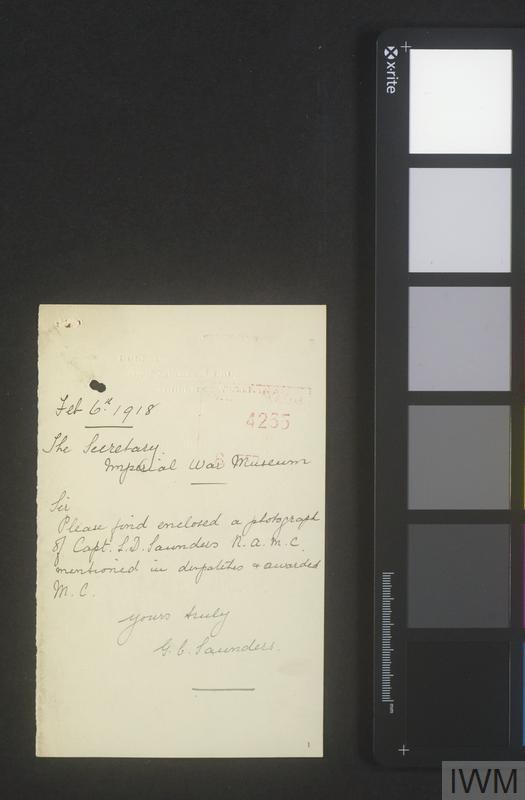 x-rite
Feb 6th 1918
4265
The Secretary
Imperial War Museum
Sir
Please find enclosed a photograph
of Capt. L.D. Saunders R.A.M.C.
mentioned in despatches & awarded
M.C.
Yours truly
G.C. Saunders.
1
mm
IWM